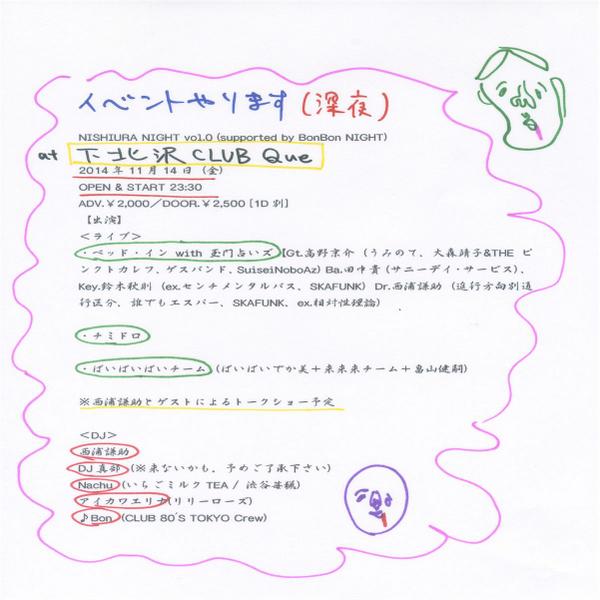 イベントやります(深夜)
NISHIURA NIGHT vo1.0 (supported by BonBon NIGHT)
at 下北沢 CLUB Que
2014 年 11 月 14 日 (金)
OPEN & START 23:30
ADV.¥2,000/DOOR.¥2,500 [1D 別]
【出演】
<ライブ>
・ベッド・イン with 玉門占いズ【Gt.高野京介 (うみのて、大森靖子&THE ピ
ンクトカレフ、ゲスバンド、SuiseiNoboAz) Ba.田中貴 (サニーデイ・サービス)、
Key.鈴木秋則 (ex.センチメンタルバス、SKAFUNK) Dr.西浦謙助 (進行方向別通
行区分、誰でもエスパー、SKAFUNK、ex.相対性理論)
・チミドロ
・ぱいぱいぱいチーム (ぱいぱいでか美+来来来チーム+畠山健嗣)
※西浦謙助とゲストによるトークショー予定
<DJ>
西浦謙助
DJ 真部 (※来ないかも。予めご了承下さい)
Nachu (いちごミルク TEA / 渋谷苺橇)
アイカワエリナ(リリーローズ)
♪Bon (CLUB 80'S TOKYO Crew)